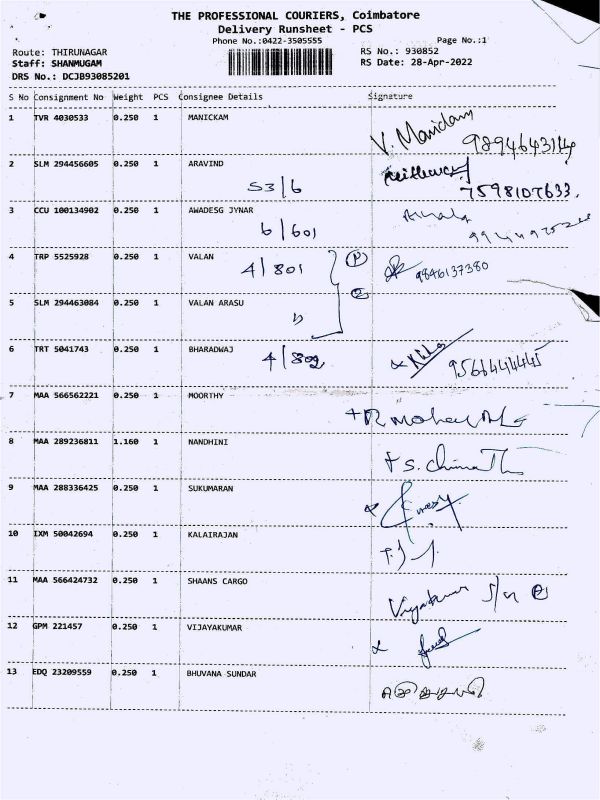 THE PROFESSIONAL COURIERS, Coimbatore
Delivery Runsheet - PCS
Phone No.:0422-3505555 Page No.:1
Route: THIRUNAGAR RS No.: 930852
Staff: SHANMUGAM RS Date: 28-Apr-2022
DRS No.: DCJB93085201
S No Consignment No Weight PCS Consignee Details Signature
1 TVR 4030533 0.250 1 MANICKAM
V. Manickam
2 SLM 294456605 0.250 1 ARAVIND
S3/6 7598107633.
3 CCU 100134902 0.250 1 AWADESG JYNAR
6/601
4 TRP 5525928 0.250 1 VALAN
4/801 9846137380
5 SLM 294463084 0.250 1 VALAN ARASU
6 TRT 5041743 0.250 1 BHARADWAJ
4/802
7 MAA 566562221 0.250 1 MOORTHY
8 MAA 289236811 1.160 1 NANDHINI
9 MAA 288336425 0.250 1 SUKUMARAN
10 IXM 50042694 0.250 1 KALAIRAJAN
11 MAA 566424732 0.250 1 SHAANS CARGO
12 GPM 221457 0.250 1 VIJAYAKUMAR
13 EDQ 23209559 0.250 1 BHUVANA SUNDAR